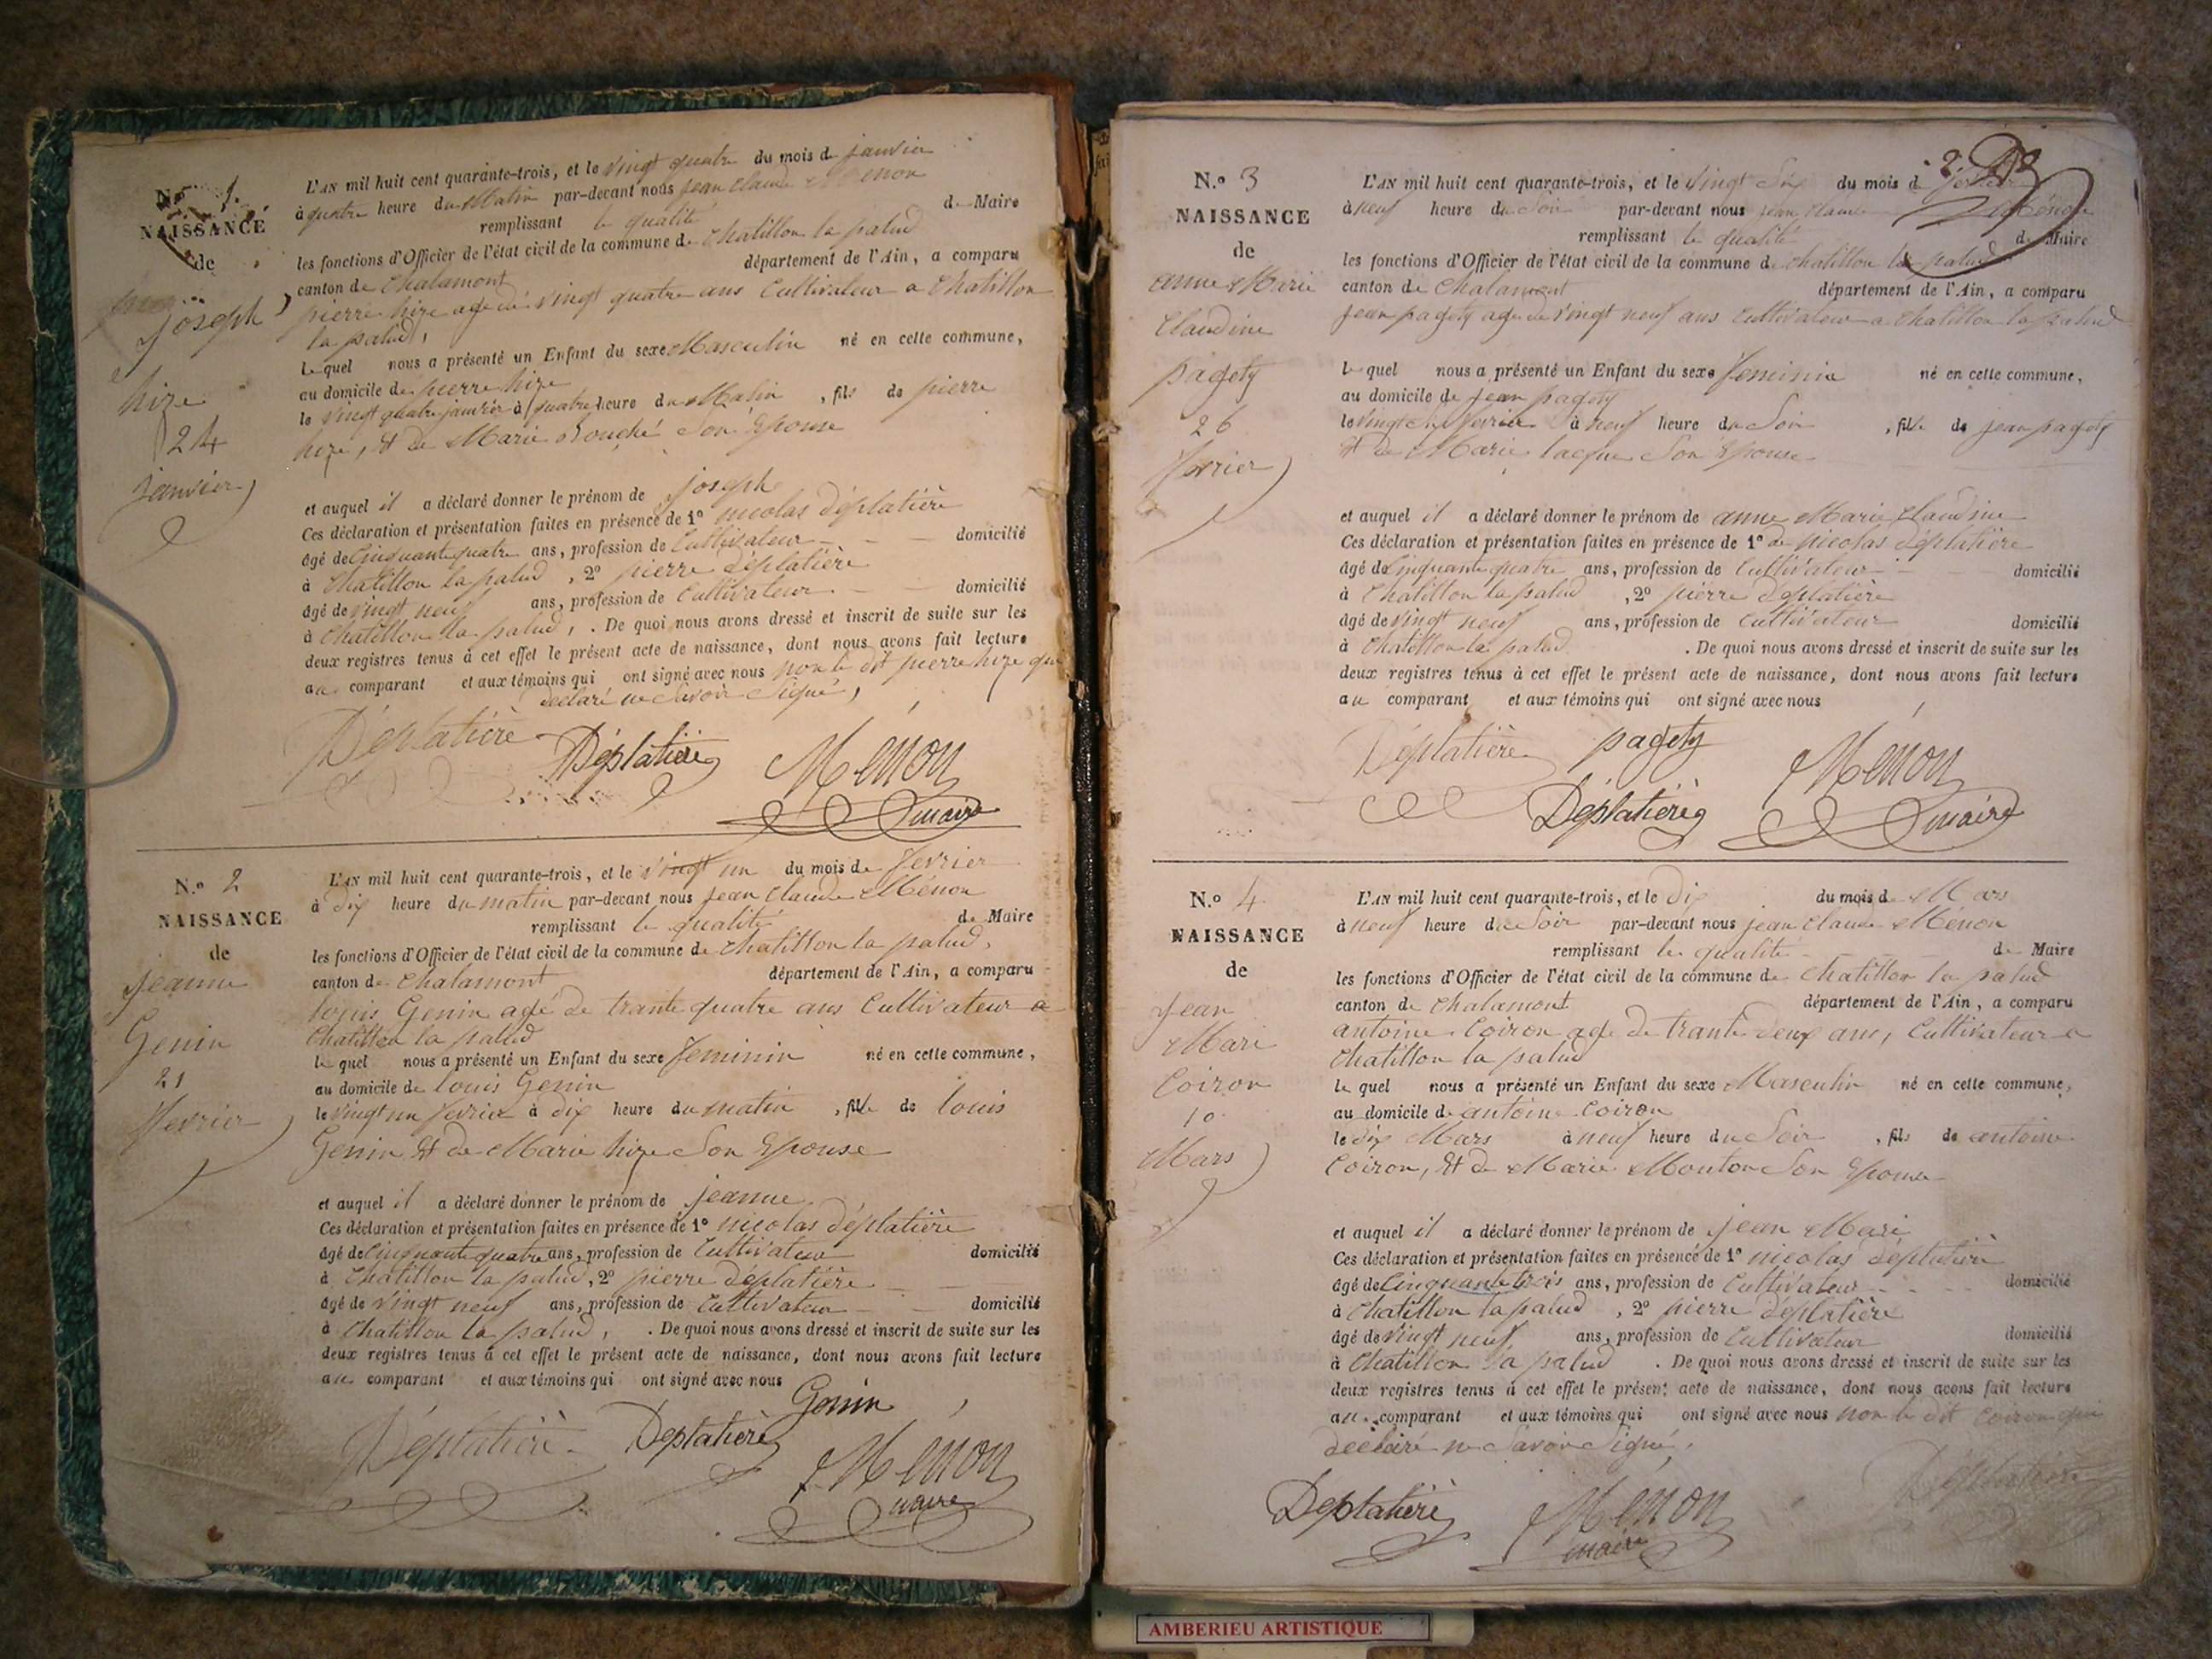 N.o 1.
NAISSANCE
de
joseph
hize
24
janvier
L'AN mil huit cent quarante-trois, et le vingt quatre du mois de janvier
à quatre heure du Matin par-devant nous jean Claude Menon
remplissant la qualité de Maire
les fonctions d'Officier de l'état civil de la commune de Chatillon la palud
canton de Chalamont département de l'Ain, a comparu
pierre hize agé de vingt quatre ans Cultivateur a Chatillon
la palud,
lequel nous a présenté un Enfant du sexe Masculin né en cette commune,
au domicile de pierre hize
le vingt quatre janvier à quatre heure du Matin, fils de pierre
hize, et de Marie Bouché Son Epouse
et auquel il a déclaré donner le prénom de joseph
Ces déclaration et présentation faites en présence de 1o nicolas déplatière
âgé de Cinquante quatre ans, profession de Cultivateur domicilié
à Chatillon la palud, 2o pierre déplatière
âgé de vingt neuf ans, profession de Cultivateur domicilié
à Chatillon la palud, . De quoi nous avons dressé et inscrit de suite sur les
deux registres tenus à cet effet le présent acte de naissance, dont nous avons fait lecture
au comparant et aux témoins qui ont signé avec nous non le dit pierre hize qui
declaré ne Savoir Signé,
Déplatière Déplatière Ménon
maire
N.o 2
NAISSANCE
de
jeanne
Genin
21
fevrier
L'AN mil huit cent quarante-trois, et le vingt un du mois de fevrier
à dix heure du matin par-devant nous jean Claude Ménon
remplissant la qualité de Maire
les fonctions d'Officier de l'état civil de la commune de Chatillon la palud,
canton de Chalamont département de l'Ain, a comparu
louis Genin agé de trante quatre ans Cultivateur a
Chatillon la palud
lequel nous a présenté un Enfant du sexe feminin né en cette commune,
au domicile de louis Genin
le vingt un fevrier à dix heure du matin, fille de louis
Genin et de Marie hize Son Epouse
et auquel il a déclaré donner le prénom de jeanne
Ces déclaration et présentation faites en présence de 1o nicolas déplatière
âgé de Cinquante quatre ans, profession de Cultivateur domicilié
à Chatillon la palud, 2o pierre déplatière
âgé de vingt neuf ans, profession de Cultivateur domicilié
à Chatillon la palud, . De quoi nous avons dressé et inscrit de suite sur les
deux registres tenus à cet effet le présent acte de naissance, dont nous avons fait lecture
au comparant et aux témoins qui ont signé avec nous
Genin
Déplatière Déplatière Ménon
maire
N.o 3
NAISSANCE
de
anne Marie
Claudine
pagety
26
fevrier
L'AN mil huit cent quarante-trois, et le vingt Six du mois de fevrier
à neuf heure du Soir par-devant nous jean Claude Ménon
remplissant la qualité de Maire
les fonctions d'Officier de l'état civil de la commune de Chatillon la palud
canton de Chalamont département de l'Ain, a comparu
jean pagety agé de vingt neuf ans Cultivateur a Chatillon la palud
lequel nous a présenté un Enfant du sexe feminin né en cette commune,
au domicile de jean pagety
le vingt Six fevrier à neuf heure du Soir, fille de jean pagety
et de Marie lacque Son Epouse
et auquel il a déclaré donner le prénom de anne Marie Claudine
Ces déclaration et présentation faites en présence de 1o de nicolas déplatière
âgé de Cinquante quatre ans, profession de Cultivateur domicilié
à Chatillon la palud, 2o pierre déplatière
âgé de vingt neuf ans, profession de Cultivateur domicilié
à Chatillon la palud . De quoi nous avons dressé et inscrit de suite sur les
deux registres tenus à cet effet le présent acte de naissance, dont nous avons fait lecture
au comparant et aux témoins qui ont signé avec nous
Déplatière pagety Ménon
Déplatière maire
N.o 4
NAISSANCE
de
jean
Mari
Coiron
10
Mars
L'AN mil huit cent quarante-trois, et le dix du mois de Mars
à neuf heure du Soir par-devant nous jean Claude Menon
remplissant la qualité de Maire
les fonctions d'Officier de l'état civil de la commune de Chatillon la palud
canton de Chalamont département de l'Ain, a comparu
antoine Coiron agé de trante deux ans, Cultivateur a
Chatillon la palud
lequel nous a présenté un Enfant du sexe Masculin né en cette commune,
au domicile de antoine Coiron
le dix Mars à neuf heure du Soir, fils de antoine
Coiron, et de Marie Mouton Son Epouse
et auquel il a déclaré donner le prénom de jean Mari
Ces déclaration et présentation faites en présence de 1o nicolas déplatière
âgé de Cinquante trois ans, profession de Cultivateur domicilié
à Chatillon la palud, 2o pierre déplatière
âgé de vingt neuf ans, profession de Cultivateur domicilié
à Chatillon la palud . De quoi nous avons dressé et inscrit de suite sur les
deux registres tenus à cet effet le présent acte de naissance, dont nous avons fait lecture
au comparant et aux témoins qui ont signé avec nous non le dit Coiron qui
declaré ne Savoir Signé,
Déplatière Ménon Déplatière
maire
AMBERIEU ARTISTIQUE